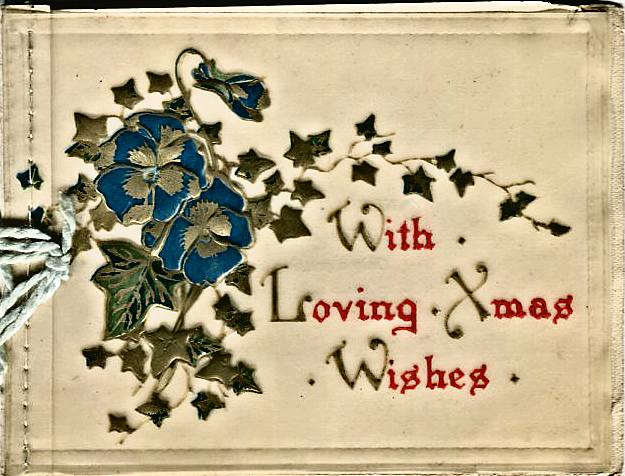 With
Loving Xmas
Wishes